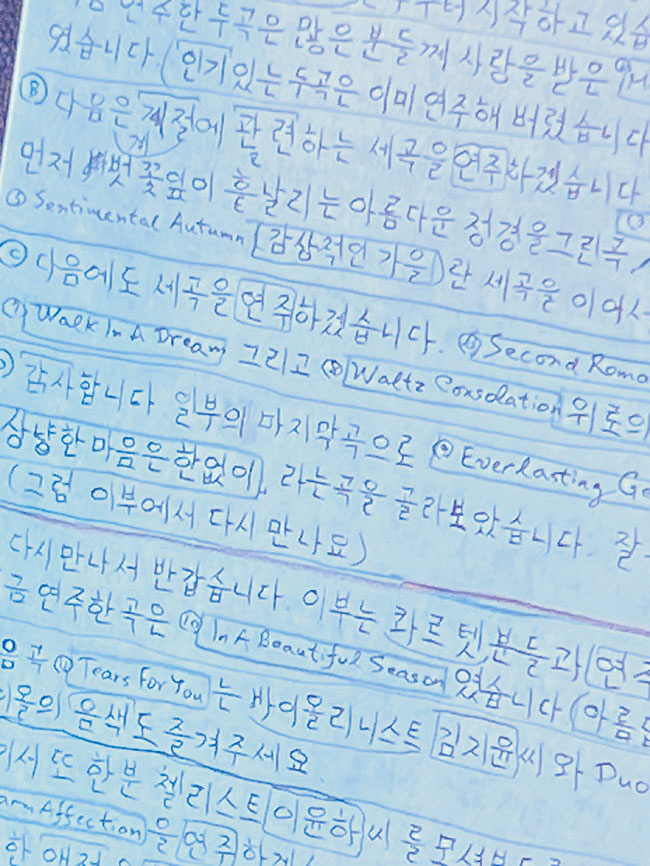 연주한 두곡은 많은 분들께 사랑을 받은
였습니다. (인기있는 두곡은 이미 연주해 버렸습니다
Ⓑ 다음은 계절에 관련하는 세곡을 연주하겠습니다
계
먼저 벚꽃잎이 흩날리는 아름다운 정경을 그린곡,
Sentimental Autumn (감상적인 가을)란 세곡을 이어서
Ⓒ 다음에도 세곡을 연주하겠습니다. ⑥ Second
⑦ Walk In A Dream 그리고 ⑧ Waltz Consolation 위로의
감사합니다 일부의 마지막곡으로 ⑨ Everlasting
상냥한 마음은 한없이, 라는곡을 골라보았습니다. 잘
(그럼 이부에서 다시 만나요)
다시만나서 반갑습니다. 이부는 콰르텟분들과 (연주
금 연주한곡은 ⑩ In A Beautiful Season 였습니다 (아름답
음곡 ⑪ Tears For You 는 바이올리니스트 김지윤씨와 Duo
이올의 음색도 즐겨주세요.
서 또 한분 첼리스트 이윤하씨를
Affection) 을 연주하겠
한 애정